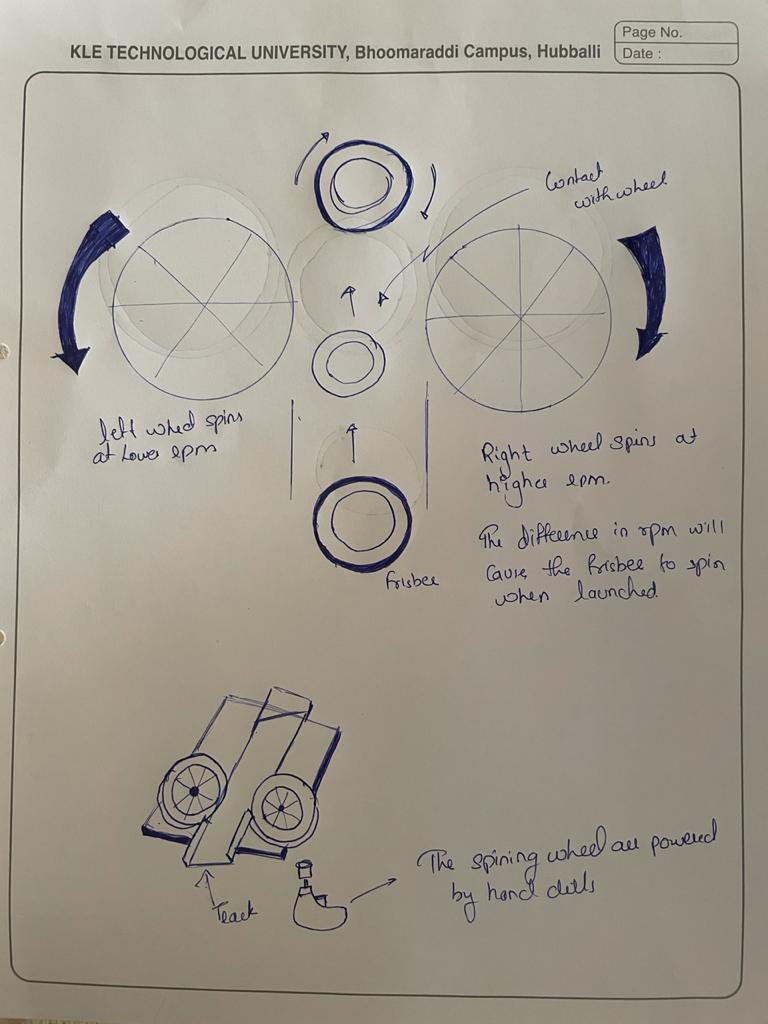 KLE TECHNOLOGICAL UNIVERSITY, Bhoomaraddi Campus, Hubballi
Page No.
Date :
Contact
with wheel
left wheel spins
at Lower rpm
Right wheel spins at
higher rpm.
The difference in rpm will
Cause the frisbee to spin
when launched.
Frisbee
The spining wheel are powered
by hand drills
Track